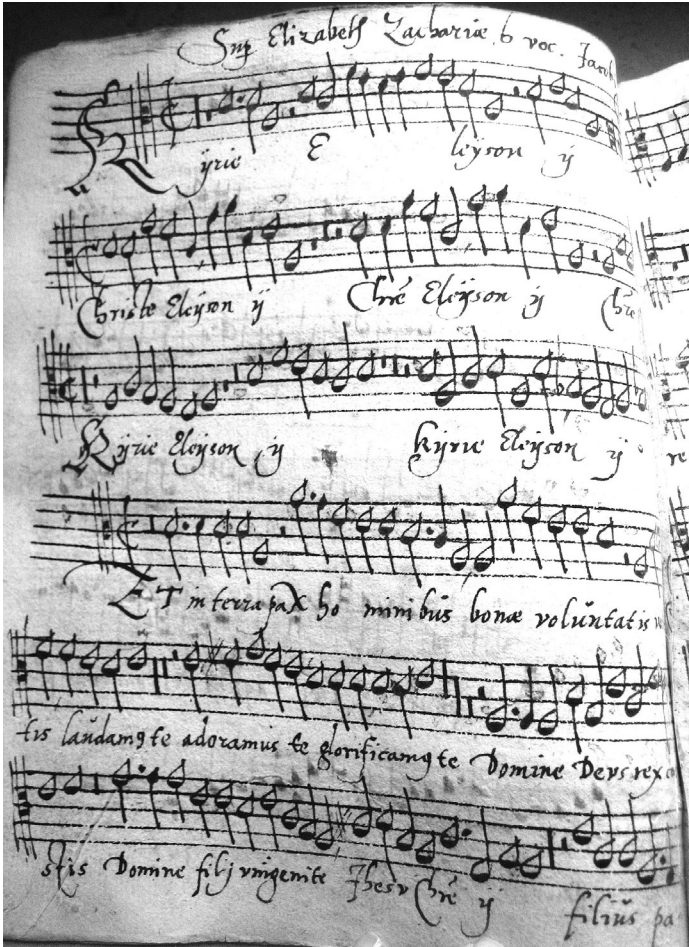 Sup Elizabeth Zachariæ 6 voc. Jacob
Kÿrie E leÿson ij
Christe Eleÿson ij Chrē Eleÿson ij Chrē
Kÿrie Eleÿson ij Kÿrie Eleÿson ij
re
ET in terra pax ho minibus bonæ voluntatis
tis laudamꝰ te adoramus te glorificamꝰ te Domine Deus rex
stis Domine filj vnigenite Jhesv Chrē ij filiŭs pa